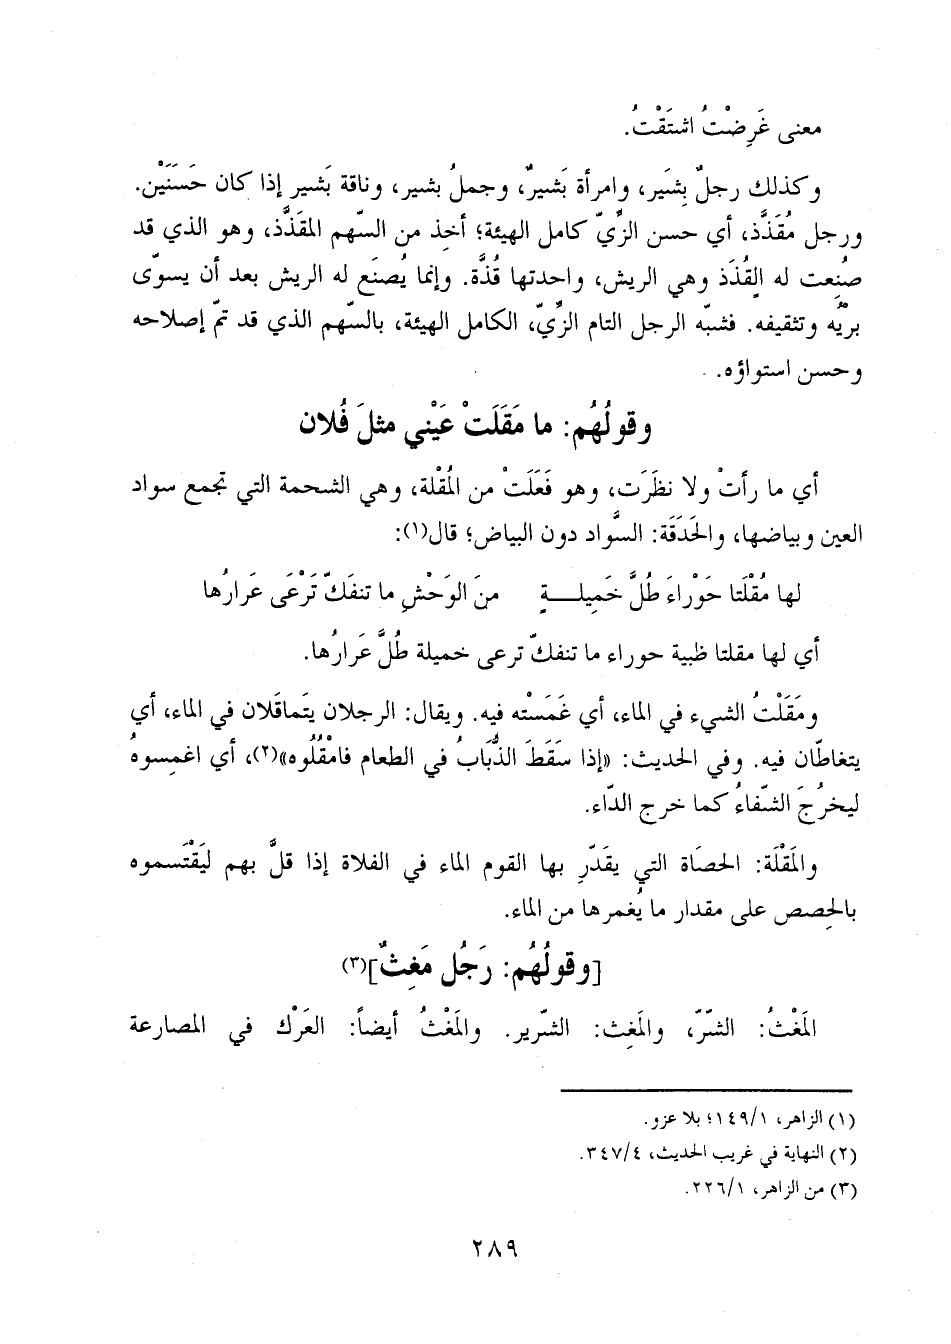 معنى غَرِضْتُ اشتَقْتُ.
وكذلك رجلٌ بِشَير، وامرأة بَشيرٌ، وجملُ بشير، وناقة بَشير إذا كان حَسَنَيْن.
ورجل مُقَذَّذ، أي حسن الزِّيّ كامل الهيئة؛ أخِذ من السّهم المقَذَّذ، وهو الذي قد
صُنِعت له القُذَذ وهي الريش، واحدتها قُذَّة. وإنما يُصنَع له الريش بعد أن يسوّى
بريُه وتثقيفه. فشبّه الرجل التام الزِّيّ، الكامل الهيئة، بالسّهم الذي قد تمّ إصلاحه
وحسن استواؤه.
وقولُهُم: ما مَقَلَتْ عَيْني مثلَ فُلان
أي ما رأتْ ولا نظَرَت، وهو فَعَلَتْ من المُقْلة، وهي الشحمة التي تجمع سواد
العين وبياضها، والحَدَقَة: السَّواد دون البياض؛ قال(١):
لها مُقْلَتا حَوْراءَ طُلَّ خَمِيلـــةٍ منَ الوَحْشِ ما تنفَكّ تَرْعَى عَرارُها
أي لها مقلتا ظبية حوراء ما تنفكّ ترعى خميلة طُلَّ عَرارُها.
ومَقَلْتُ الشيء في الماء، أي غَمَسْته فيه. ويقال: الرجلان يتَماقَلان في الماء، أي
يتغاطّان فيه. وفي الحديث: «إذا سَقَطَ الذُّبَابُ في الطعام فامْقُلُوه»(٢)، أي اغمِسوهُ
ليخرُجَ الشّفاءُ كما خرج الدّاء.
والمَقْلَة: الحصَاة التي يقَدّرِ بها القوم الماء في الفلاة إذا قلَّ بهم ليَقْتَسموه
بالحِصص على مقدار ما يُغمرها من الماء.
[وقولُهُم: رَجُل مَغِثٌ](٣)
المَغْثُ: الشّرّ، والمَغِث: الشّرير. والمَغْثُ أيضاً: العَرْك في المصارعة
(١) الزاهر، ١٤٩/١؛ بلا عزو.
(٢) النهاية في غريب الحديث، ٣٤٧/٤.
(٣) من الزاهر، ٢٢٦/١.
٢٨٩